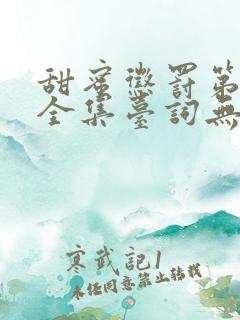 甜蜜懲罰第
全集臺詞無
寒武記1
未经同意禁止转载